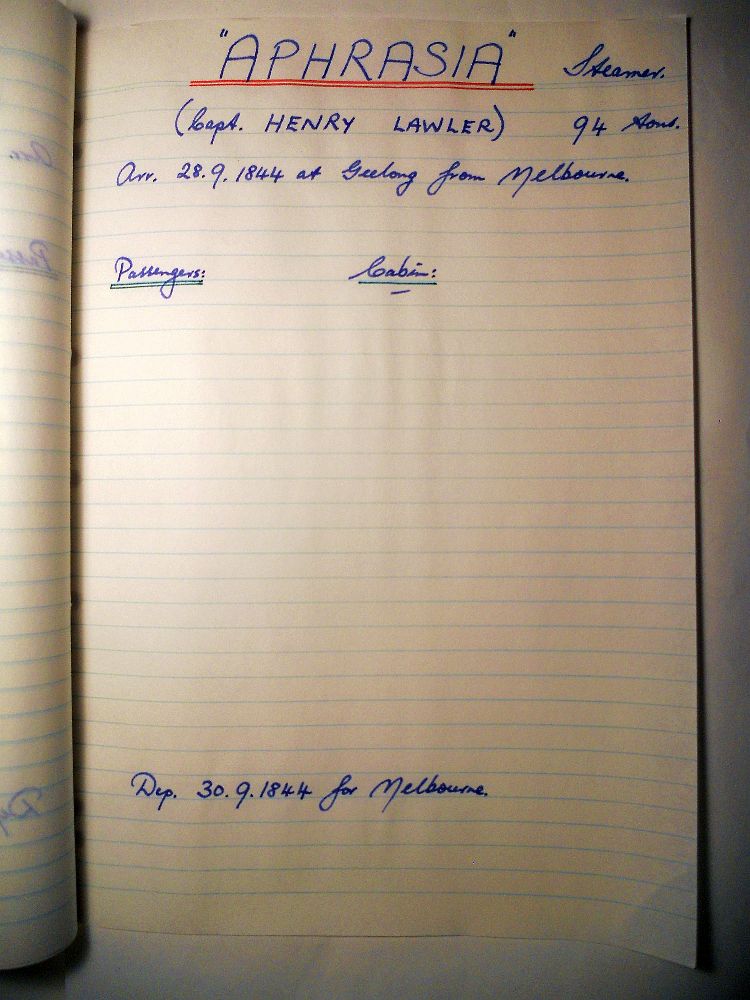 "APHRASIA" Steamer.
(Capt. HENRY LAWLER) 94 tons.
Arr. 28.9.1844 at Geelong from Melbourne.
Passengers: Cabin:
Dep. 30.9.1844 for Melbourne.